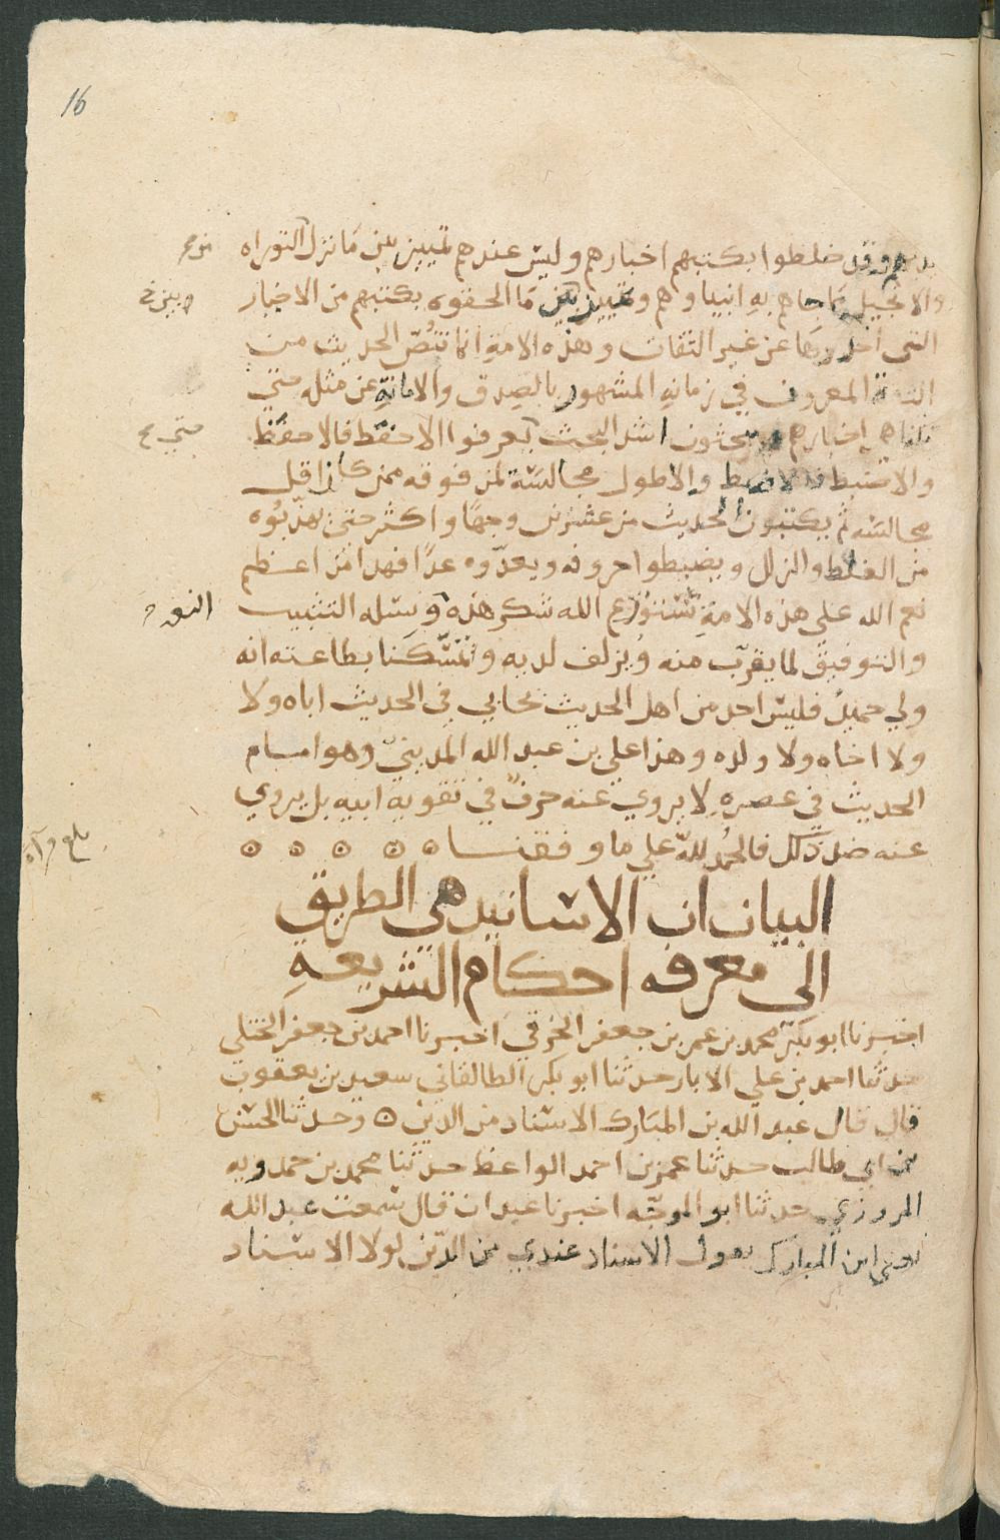 16
وقد خلطوا بكتبهم اخبارهم وليس عندهم تمييز بين ما نزل من التوراه
والانجيل مما جاهم به انبياوهم وتمييز بين ما الحقوه بكتبهم من الاخبار
التي اخذوها عن غير الثقات وهذه الامة انما تنص الحديث من
الثقة المعروف في زمانه المشهور بالصدق والامانة عن مثله حتي
تتناهى اخبارهم ثم يبحثون اشد البحث حتي يعرفوا الاحفظ فالاحفظ
والاضبط فالاضبط والاطول مجالسة لمن فوقه ممن كان اقل
مجالسه ثم يكتبون الحديث من عشرين وجها واكثر حتى يهذبوه
من الغلط والزلل ويضبطوا حروفه ويعدوه عدا فهذا من اعظم
نعم الله على هذه الامة نستوزع الله شكر هذه النعمه ونسله التثبيت
والتوفيق لما يقرب منه ويزلف لديه وتمسكنا بطاعته انه
ولي حميد فليس احد من اهل الحديث يحابي في الحديث اباه ولا
ولا اخاه ولا ولده وهذا علي بن عبد الله المديني وهو امام
الحديث في عصره لا يروي عنه حرف في تقوية ابيه بل يروي
عنه ضد ذلك فالحمد لله علي ما وفقنا ه ه ه ه ه
البيان ان الاسانيد هي الطريق
الى معرفه احكام الشريعة
اخبرنا ابو بكر محمد بن عمر بن جعفر الخرقي اخبرنا احمد بن جعفر الختلي
حدثنا احمد بن علي الابار حدثنا ابو بكر الطالقاني سعيد بن يعقوب
قال قال عبد الله بن المبارك الاسناد من الدين ه وحدثنا الحسن
بن ابي طالب حدثنا عمر بن احمد الواعظ حدثنا محمد بن حمدويه
المروزي حدثنا ابو الموجه اخبرنا عبدان قال سمعت عبد الله
يعني ابن المبارك يقول الاسناد عندي من الدين لولا الاسناد